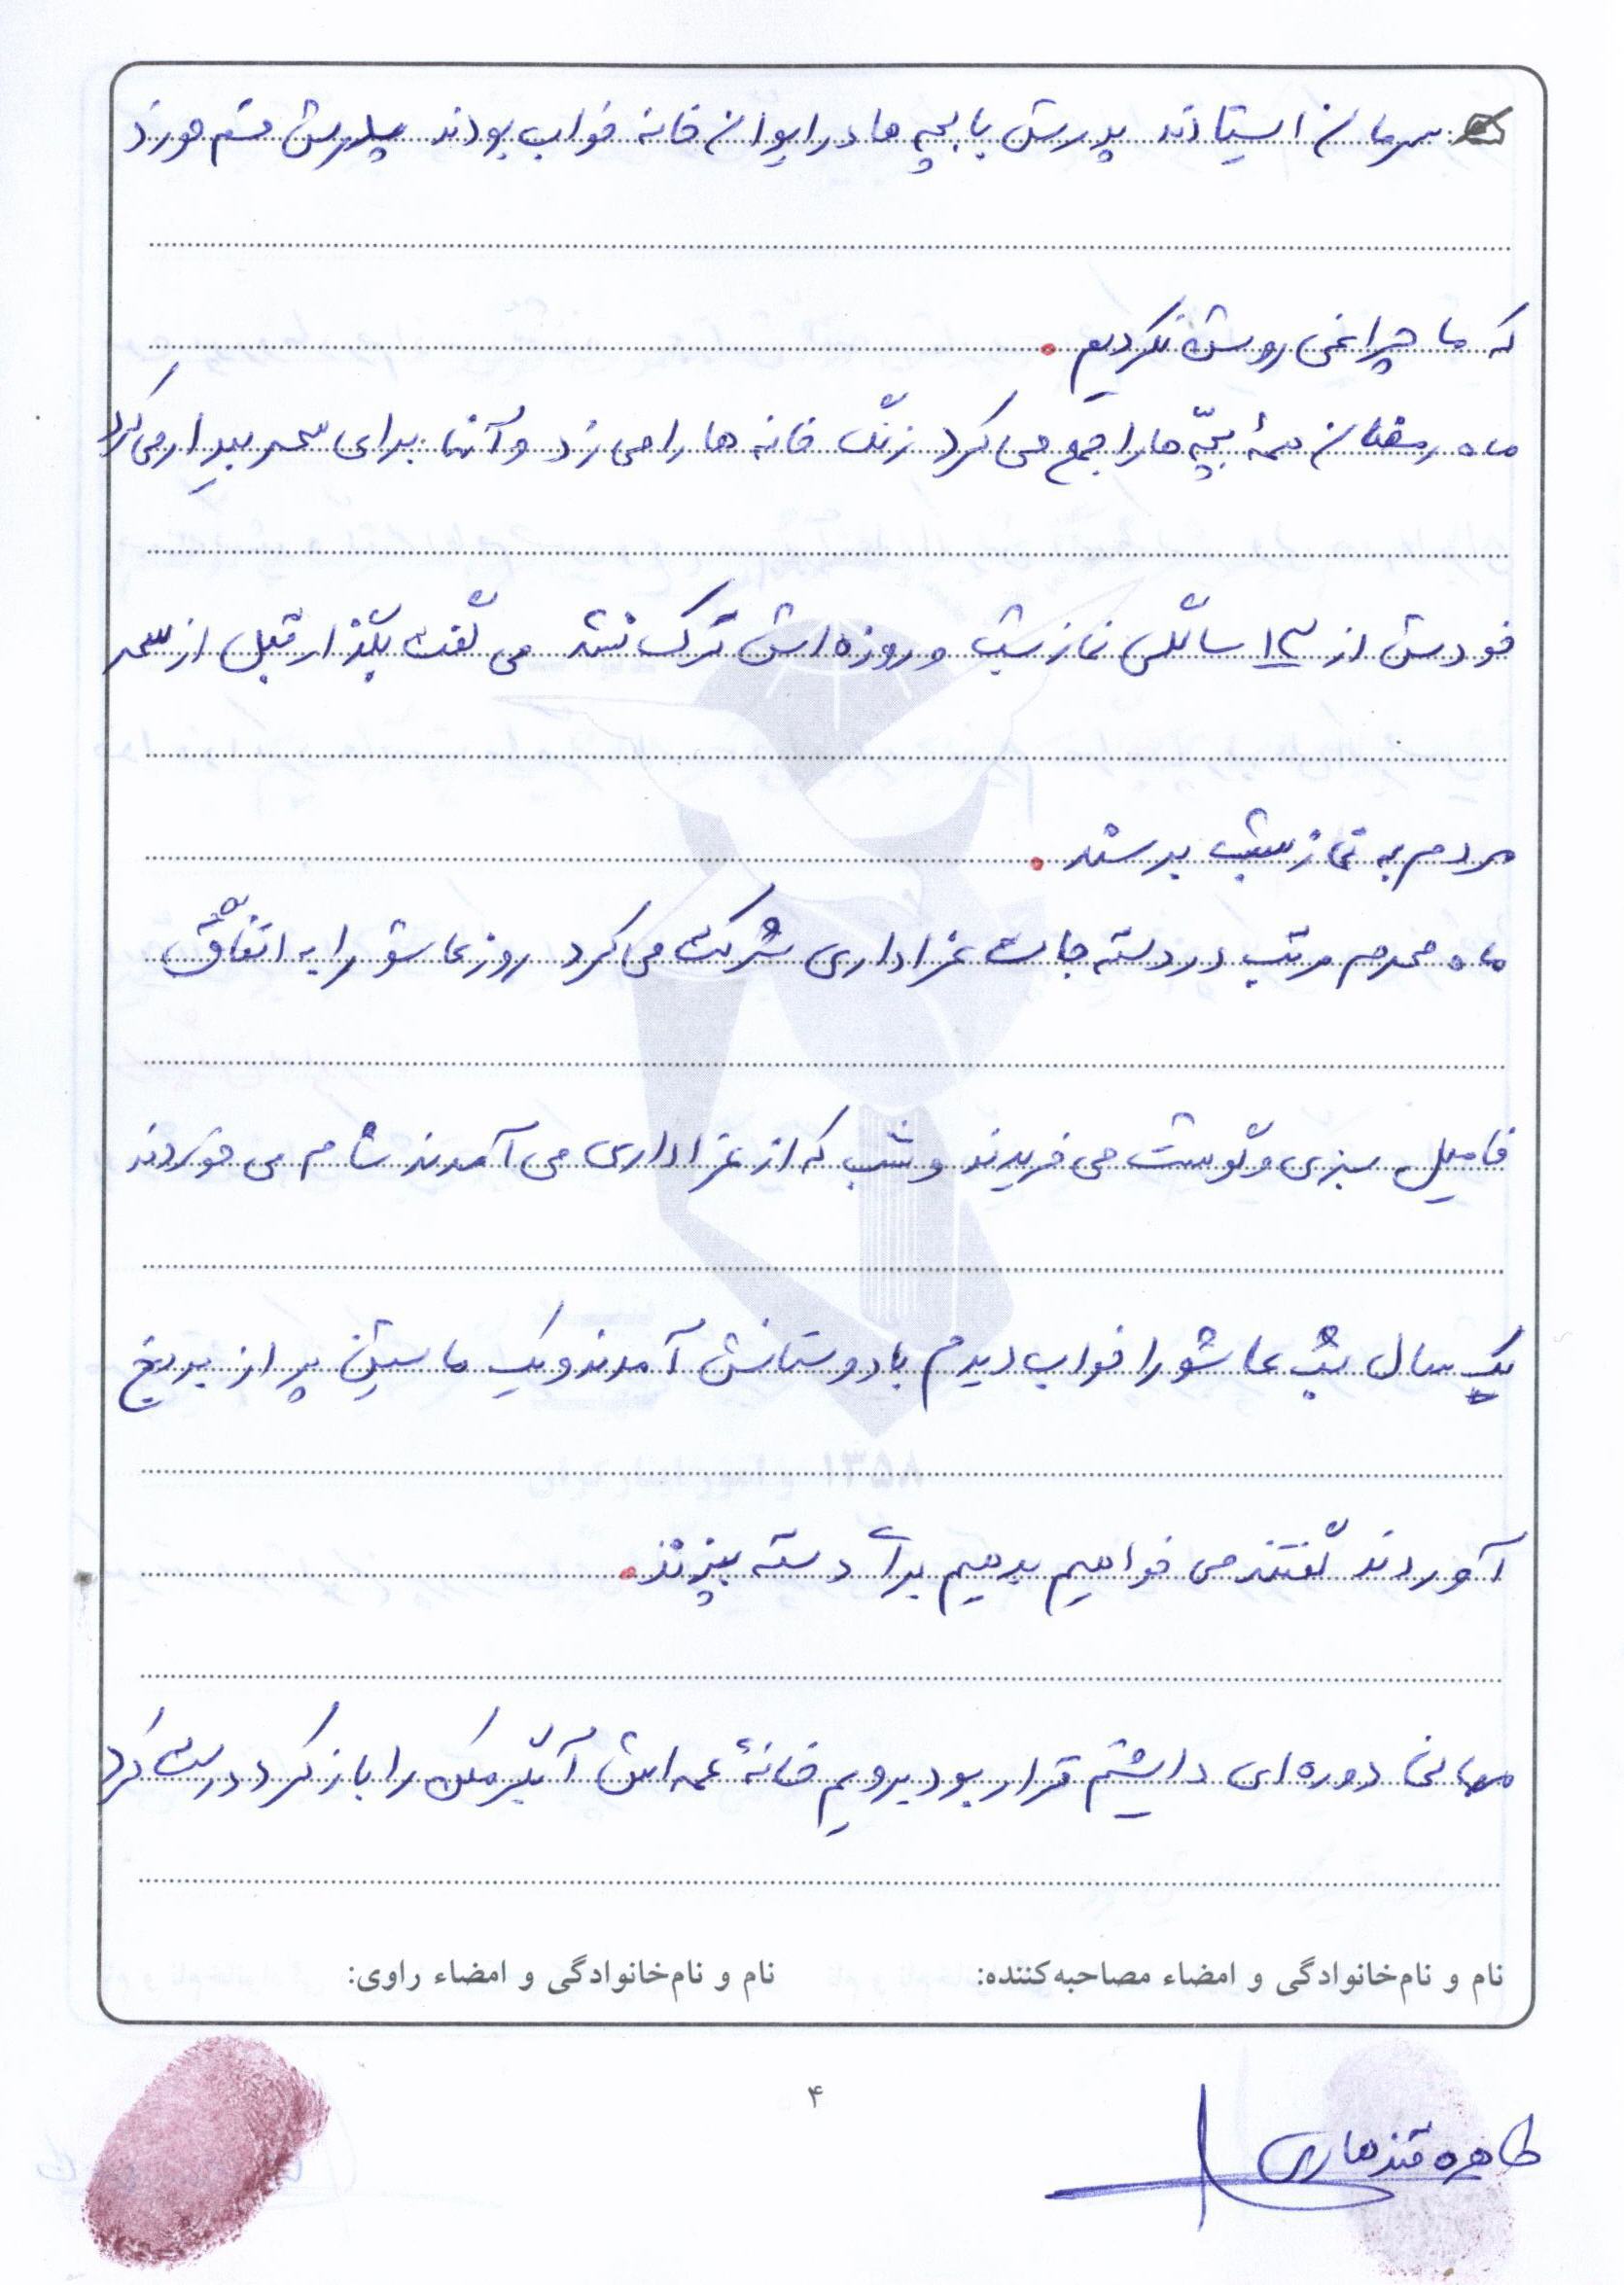 سرمان ایستادند پدرش با بچه ها در ایوان خانه خواب بودند پدرش قسم خورد
که ما چراغی روشن نکردیم.
ماه رمضان همهٔ بچّه ها را جمع می کرد زنگ خانه ها را می زد و آنها برای سحر بیدار می کرد
خودش از ۱۳ سالگی نماز شب و روزه اش ترک نشد می گفت بگذار قبل از سحر
مردم به نماز شب برسند.
ماه محرم مرتب در دسته جات عزاداری شرکت می کرد روز عاشورا به اتفاق
فامیل سبزی و گوشت می خریدند و شب که از عزاداری می آمدند شام می خوردند
یک سال شب عاشورا خواب دیدم با دوستانش آمدند و یک ماشین پر از برنج
آوردند گفتند می خواهیم بدهیم برای دسته بپزند.
مهمانی دوره ای داشتیم قرار بود برویم خانهٔ عمه اش آبگرمکن را باز کرد درست کرد
نام و نام‌خانوادگی و امضاء مصاحبه‌کننده: نام و نام‌خانوادگی و امضاء راوی:
۴
طاهره قندهاری